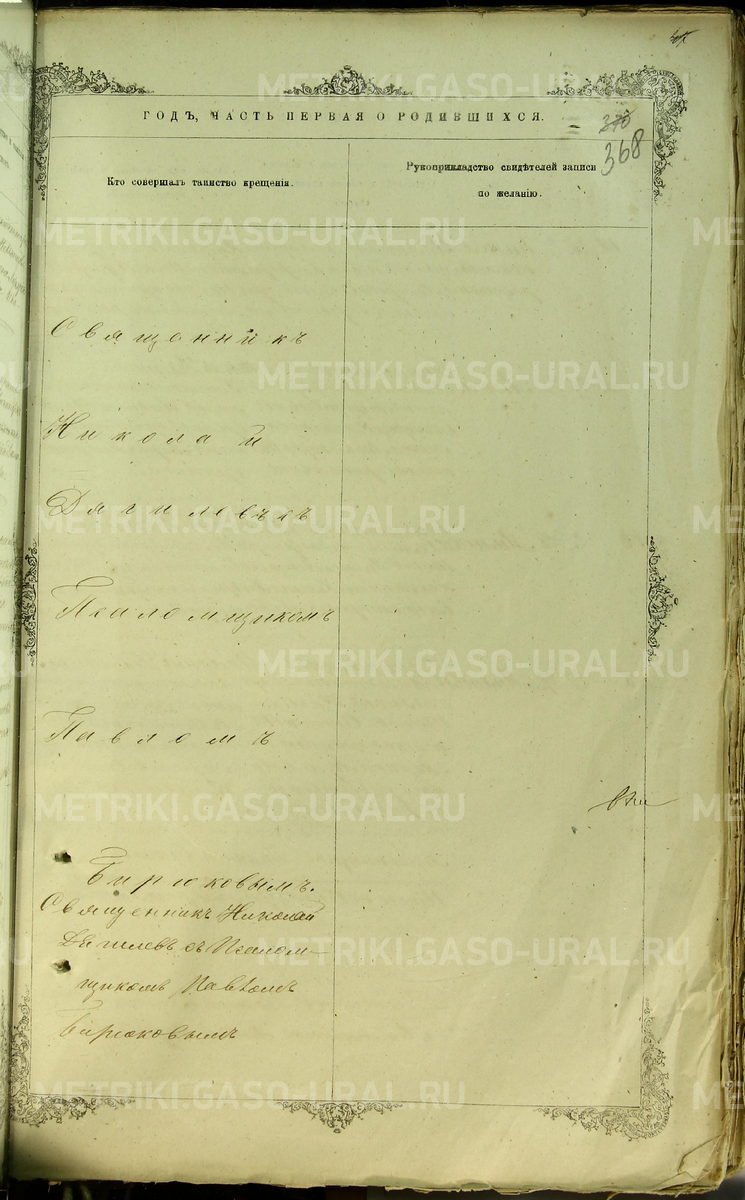 ГОДЪ, ЧАСТЬ ПЕРВАЯ О РОДИВШИХСЯ.
370
368
Кто совершалъ таинство крещенія.
Рукоприкладство свидѣтелей записи
по желанію.
Священникъ
Николай
Дягилевъ съ
Псаломщикомъ
Павломъ
Бирюковымъ.
Священникъ Николай
Дягилевъ съ Псалом-
щикомъ Павломъ
Бирюковымъ
METRIKI.GASO-URAL.RU